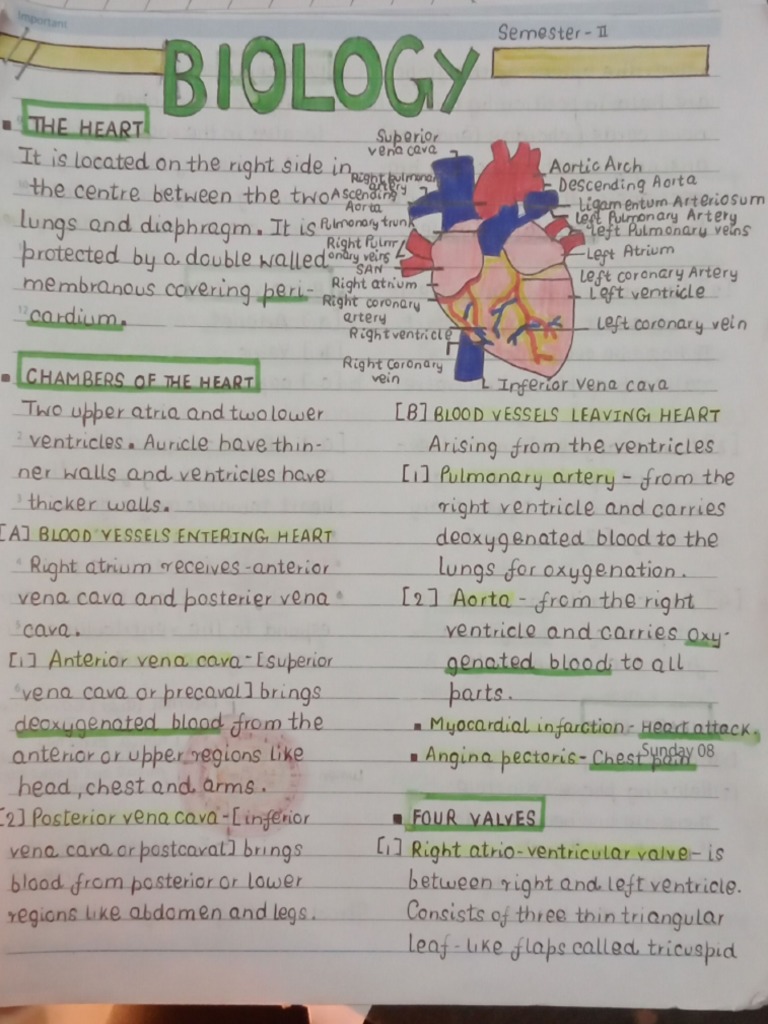 Important
Semester - II
BIOLOGY
THE HEART
It is located on the right side in
the centre between the two
lungs and diaphragm. It is
protected by a double walled
membranous covering peri-
cardium.
Superior
vena cava
Right pulmonary
artery
Ascending
Aorta
Pulmonary trunk
Right Pulm
onary veins
SAN
Right atrium
Right coronary
artery
Right ventricle
Right Coronary
vein
Aortic Arch
Descending Aorta
Ligamentum Arteriosum
Left Pulmonary Artery
Left Pulmonary veins
Left Atrium
Left coronary Artery
Left ventricle
Left coronary vein
Inferior Vena cava
CHAMBERS OF THE HEART
Two upper atria and two lower
ventricles. Auricle have thin-
ner walls and ventricles have
thicker walls.
[A] BLOOD VESSELS ENTERING HEART
Right atrium receives-anterior
vena cava and posterier vena
cava.
[1] Anterior vena cava-[superior
vena cava or precaval] brings
deoxygenated blood from the
anterior or upper regions like
head, chest and arms.
[2] Posterior vena cava-[inferior
vena cava or postcaval] brings
blood from posterior or lower
regions like abdomen and legs.
[B] BLOOD VESSELS LEAVING HEART
Arising from the ventricles
[1] Pulmonary artery - from the
right ventricle and carries
deoxygenated blood to the
lungs for oxygenation.
[2] Aorta - from the right
ventricle and carries oxy-
genated blood to all
parts.
Myocardial infarction - Heart attack.
Angina pectoris - Chest pain
Sunday 08
FOUR VALVES
[1] Right atrio-ventricular valve - is
between right and left ventricle.
Consists of three thin triangular
leaf-like flaps called tricuspid